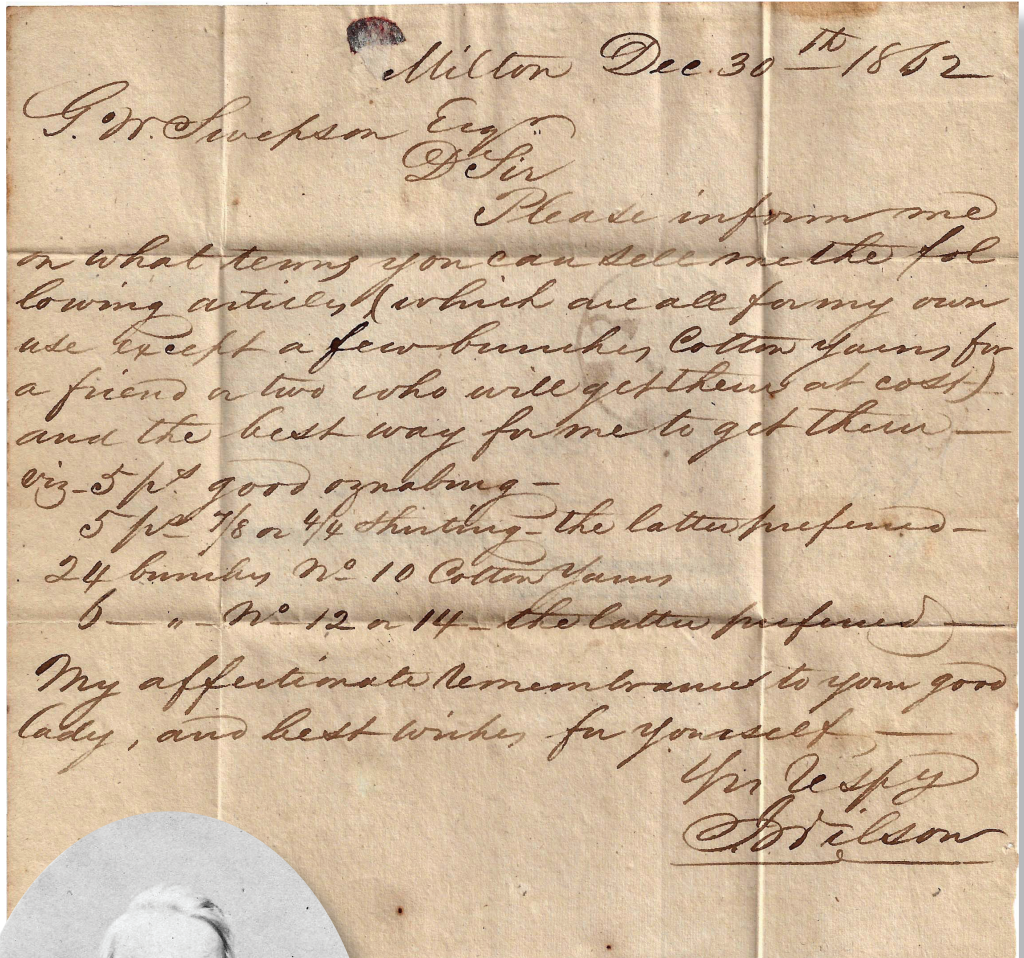 Milton Dec. 30th 1862
G. W. Swepson Esqr
D Sir
Please inform me
on what terms you can sell me the fol
lowing articles (which are all for my own
use except a few bunches Cotton Yarns for
a friend or two who will get them at cost)
and the best way for me to get them —
viz - 5 ps. good oznabing -
5 ps 7/8 or 4/4 Shirting - the latter preferred -
24 bunches No 10 Cotton Yarns
6 — " - No 12 or 14 - the latter preferred —
My affectionate remembrances to your good
lady, and best wishes for yourself, —
Yrs respy
Wilson